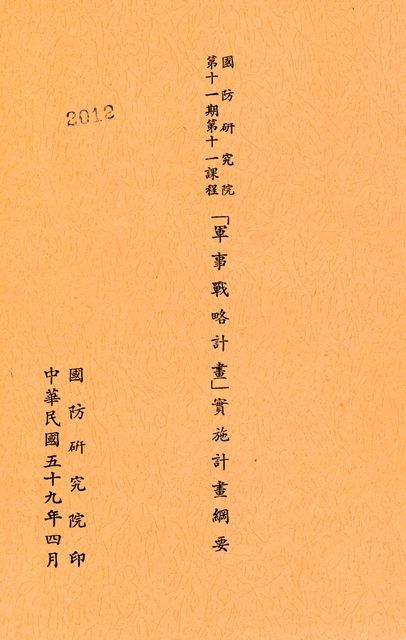 國防研究院
第十一期第十一課程
「軍事戰略計畫」實施計畫綱要
2012
國防研究院印
中華民國五十九年四月